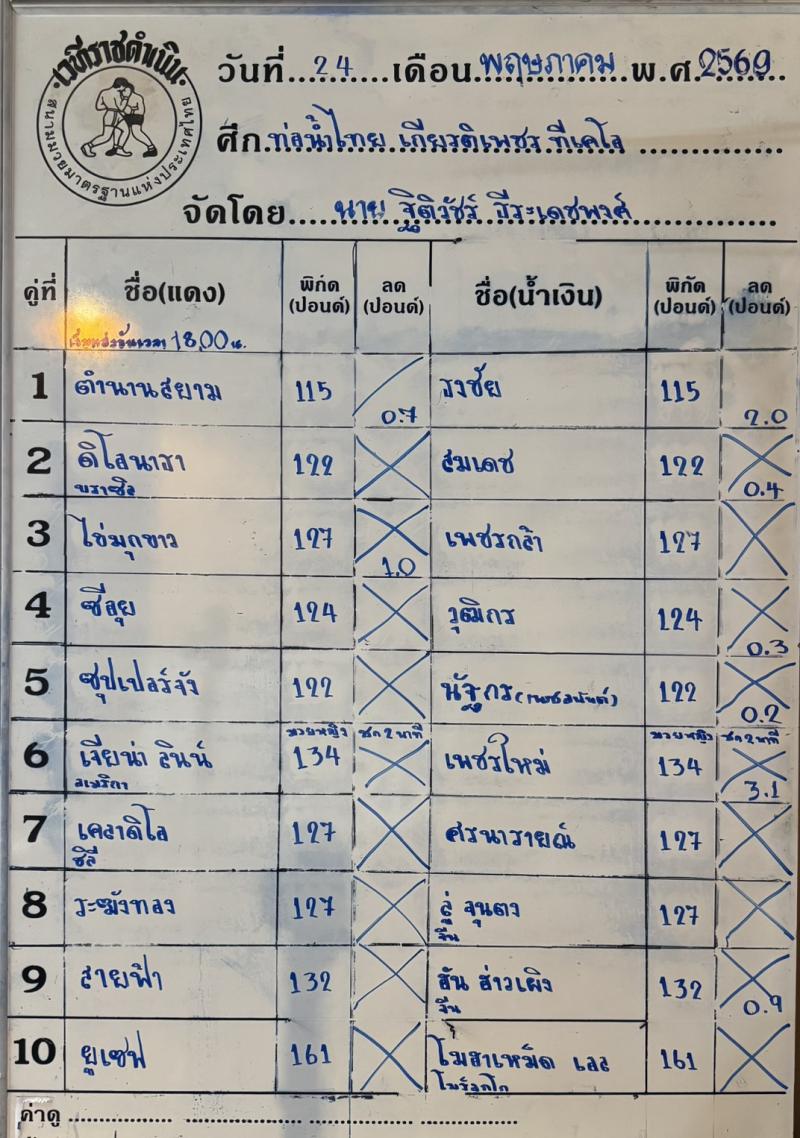 เวทีราชดำเนิน
สนามมวยมาตรฐานแห่งประเทศไทย
วันที่...24.......เดือน.พฤษภาคม..พ.ศ.2569......
ศึก.ท่อน้ำไทย เกียรติเพชร ทีเคโอ ...............
จัดโดย.....นาย ฐิติวัชร์ ธีระเดชพงศ์...............
คู่ที่ ชื่อ(แดง) พิกัด (ปอนด์) ลด (ปอนด์) ชื่อ(น้ำเงิน) พิกัด (ปอนด์) ลด (ปอนด์)
เวลา 18.00 น.
1 ตำนานสยาม 115 0.7 ธงชัย 115 2.0
2 ดิโลนารา 122 สมเดช 122 0.4
บราซิล
3 ไข่มุกขาว 127 1.0 เพชรกล้า 127
4 ซีลุย 124 วุฒิกร 124 0.3
5 ซุปเปอร์จัง 122 นัฐกร 122 0.2
มวยหญิง ชก 2 นาที มวยหญิง ชก 2 นาที
6 เจียน่า ลินน์ 134 เพชรใหม่ 134 3.1
อเมริกา
7 เคลาดิโอ 127 ศรนารายณ์ 127
ชิลี
8 ระฆังทอง 127 ลู่ จุนตง 127
จีน
9 สายฟ้า 132 ฮัน ฮ่าวเผิง 132 0.9
จีน
10 ยูเซฟ 161 โมฮาเหม็ด เลล 161
โมร็อกโก
ค่าดู .................. .................... .................. .................